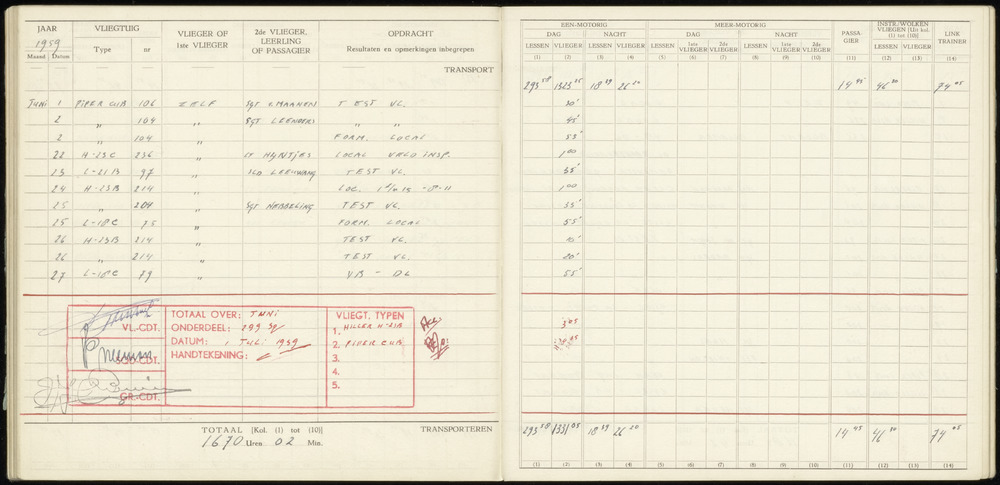 JAAR VLIEGTUIG VLIEGER OF 1ste VLIEGER 2de VLIEGER, LEERLING OF PASSAGIER OPDRACHT
1959 Type nr Resultaten en opmerkingen inbegrepen
Maand Datum
TRANSPORT
JUNI 1 PIPER CUB 106 ZELF SGT V. MAANEN TEST VL.
2 " 104 " SGT LEENDERS " "
2 104 " FORM. LOCAL
22 H-23C 236 " LT HIJNTJES LOCAL VELD INSP.
23 L-21B 97 " SLD LEEUWANG TEST VL.
24 H-23B 214 " LOC.
25 " 204 " SGT NEBBELING TEST VL.
25 L-18C 75 " FORM. LOCAL
26 H-23B 214 " TEST VL.
26 " 214 " TEST VL.
27 L-18C 79 " VB - DL
TOTAAL OVER: JUNI
ONDERDEEL: 299 Sq
DATUM: 1 JULI 1959
HANDTEKENING:
VL-CDT.
SQD-CDT.
GR-CDT.
VLIEGT. TYPEN
1. HILLER H-23B
2. PIPER CUB
3.
4.
5.
TOTAAL [Kol. (1) to (10)] TRANSPORTEREN
1670 Uren 02 Min.
EEN-MOTORIG MEER-MOTORIG PASSAGIER INSTR./WOLKEN VLIEGEN [Uit kol. (1) tot (10)] LINK TRAINER
DAG NACHT DAG NACHT
LESSEN VLIEGER LESSEN VLIEGER LESSEN 1ste VLIEGER 2de VLIEGER LESSEN 1ste VLIEGER 2de VLIEGER LESSEN VLIEGER
(1) (2) (3) (4) (5) (6) (7) (8) (9) (10) (11) (12) (13) (14)
293 58 1323 25 18 39 26 20 14 45 46 30 74 05
30'
45'
55'
1 00
35'
1 00
35'
55'
10'
20'
55'
3 05
293 58 1331 05 18 39 26 20 14 45 46 30 74 05
(1) (2) (3) (4) (5) (6) (7) (8) (9) (10) (11) (12) (13) (14)